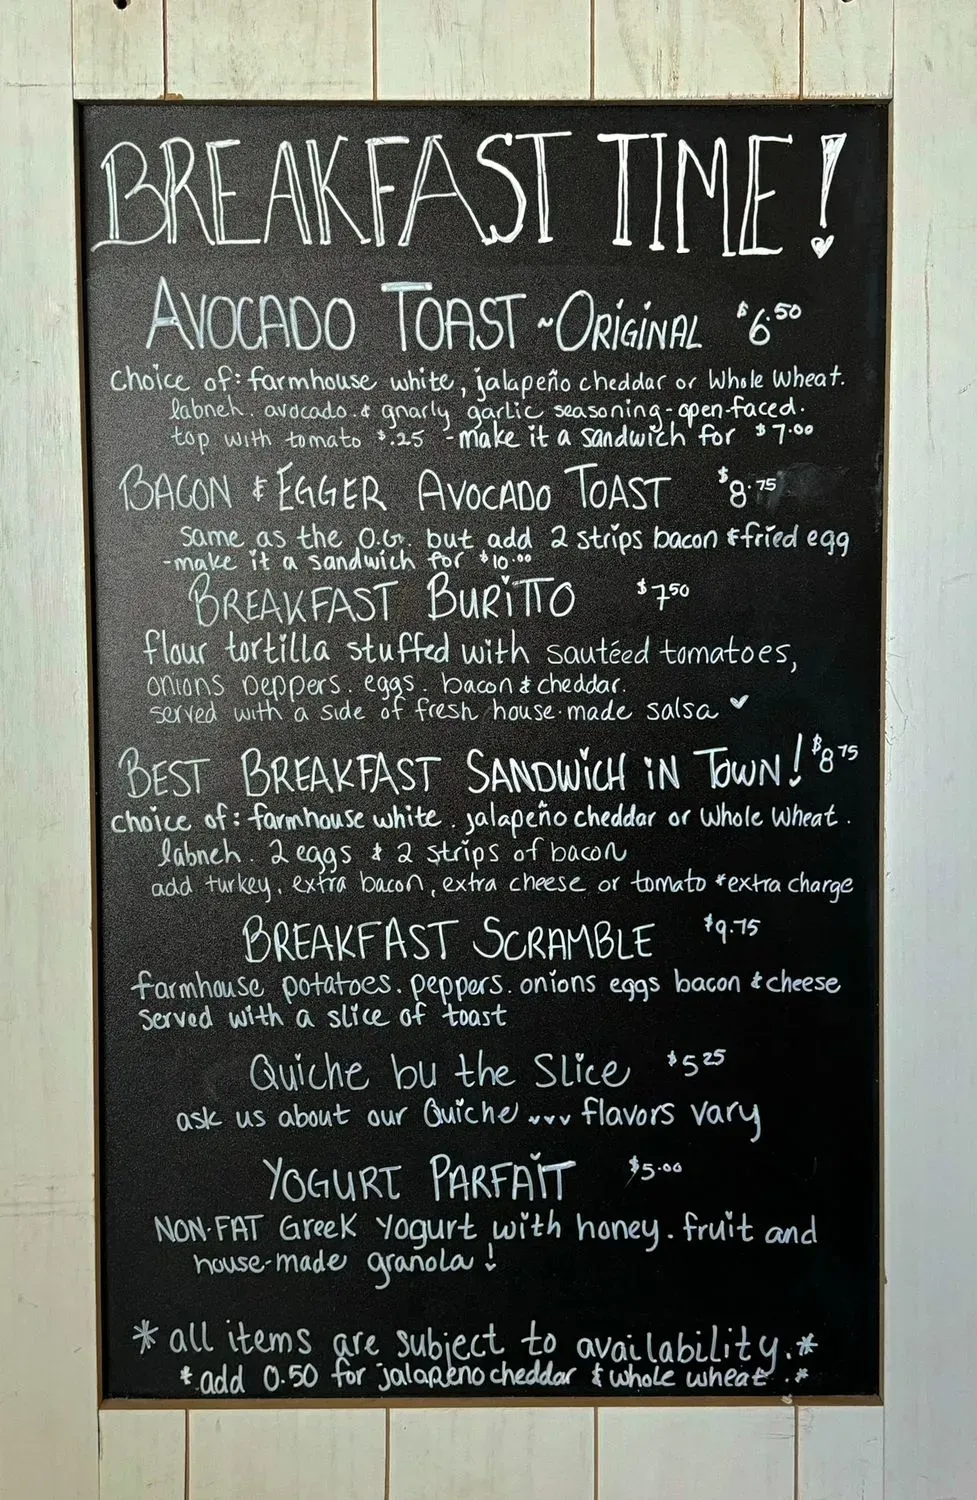 BREAKFAST TIME!
AVOCADO TOAST ~ORIGINAL $6.50
choice of: farmhouse white, jalapeño cheddar or Whole Wheat.
labneh. avocado. & gnarly garlic seasoning-open-faced.
top with tomato $.25 -make it a sandwich for $7.00
BACON & EGGER AVOCADO TOAST $8.75
same as the O.G. but add 2 strips bacon & fried egg
-make it a sandwich for $10.00
BREAKFAST BURITTO $7.50
flour tortilla stuffed with sautéed tomatoes,
onions peppers. eggs. bacon & cheddar.
served with a side of fresh house-made salsa
BEST BREAKFAST SANDWICH IN TOWN! $8.75
choice of: farmhouse white. jalapeño cheddar or Whole Wheat.
labneh. 2 eggs & 2 strips of bacon
add turkey, extra bacon, extra cheese or tomato *extra charge
BREAKFAST SCRAMBLE $9.75
farmhouse potatoes. peppers. onions eggs bacon & cheese
served with a slice of toast
Quiche by the Slice $5.25
ask us about our Quiche ... flavors vary
YOGURT PARFAIT $5.00
NON-FAT Greek Yogurt with honey. fruit and
house-made granola!
* all items are subject to availability.*
* add 0.50 for jalapeno cheddar & whole wheat.*